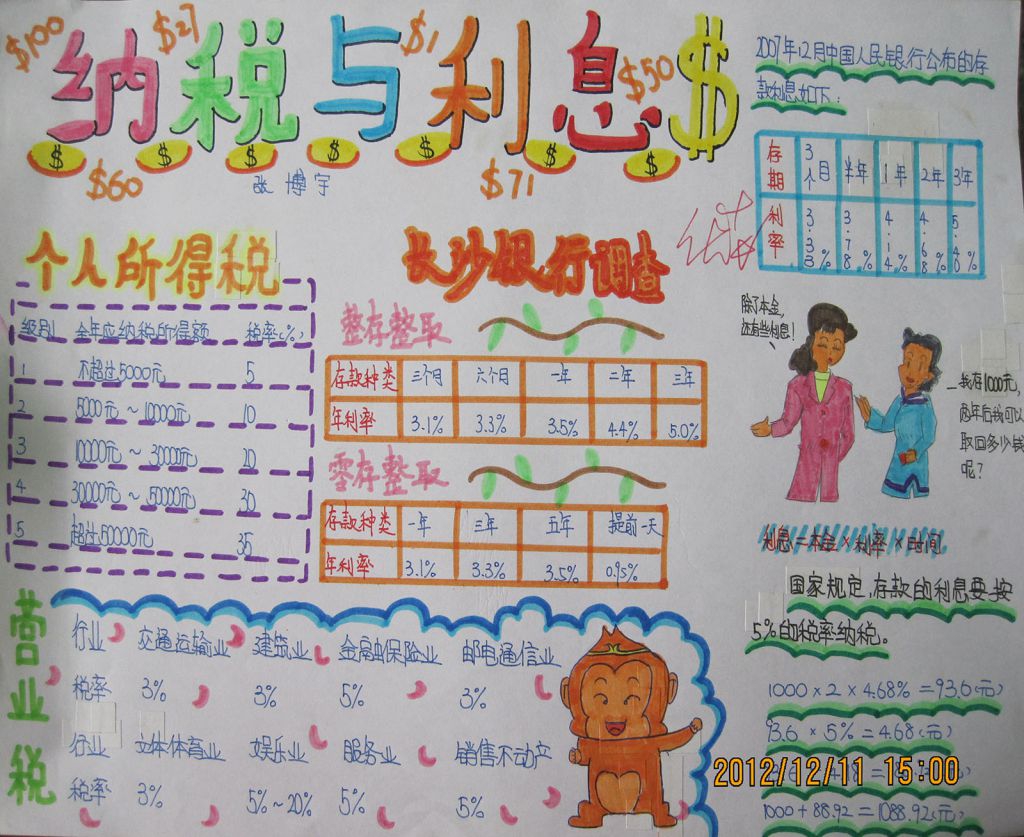 $100
$27
$1
$50
纳税与利息$
$ $ $ $ $ $ $
$60
$71
张博宇
2007年12月中国人民银行公布的存
款利息如下:
存期 3个月 半年 1年 2年 3年
利率 3.33% 3.78% 4.14% 4.68% 5.40%
个人所得税
级别 全年应纳税所得额 税率(%)
1 不超过5000元 5
2 5000元~10000元 10
3 10000元~30000元 20
4 30000元~50000元 30
5 超过50000元 35
长沙银行调查
整存整取
存款种类 三个月 六个月 一年 二年 三年
年利率 3.1% 3.3% 3.5% 4.4% 5.0%
零存整取
存款种类 一年 三年 五年 提前一天
年利率 3.1% 3.3% 3.5% 0.95%
除了本金,
还有些利息!
我存1000元,
两年后我可以
取回多少钱
呢?
利息=本金×利率×时间
国家规定,存款的利息要按
5%的税率纳税。
1000×2×4.68%=93.6(元)
93.6×5%=4.68(元)
1000+88.92=1088.92(元)
营业税
行业 交通运输业 建筑业 金融保险业 邮电通信业
税率 3% 3% 5% 3%
行业 立体体育业 娱乐业 服务业 销售不动产
税率 3% 5%~20% 5% 5%
2012/12/11 15:00